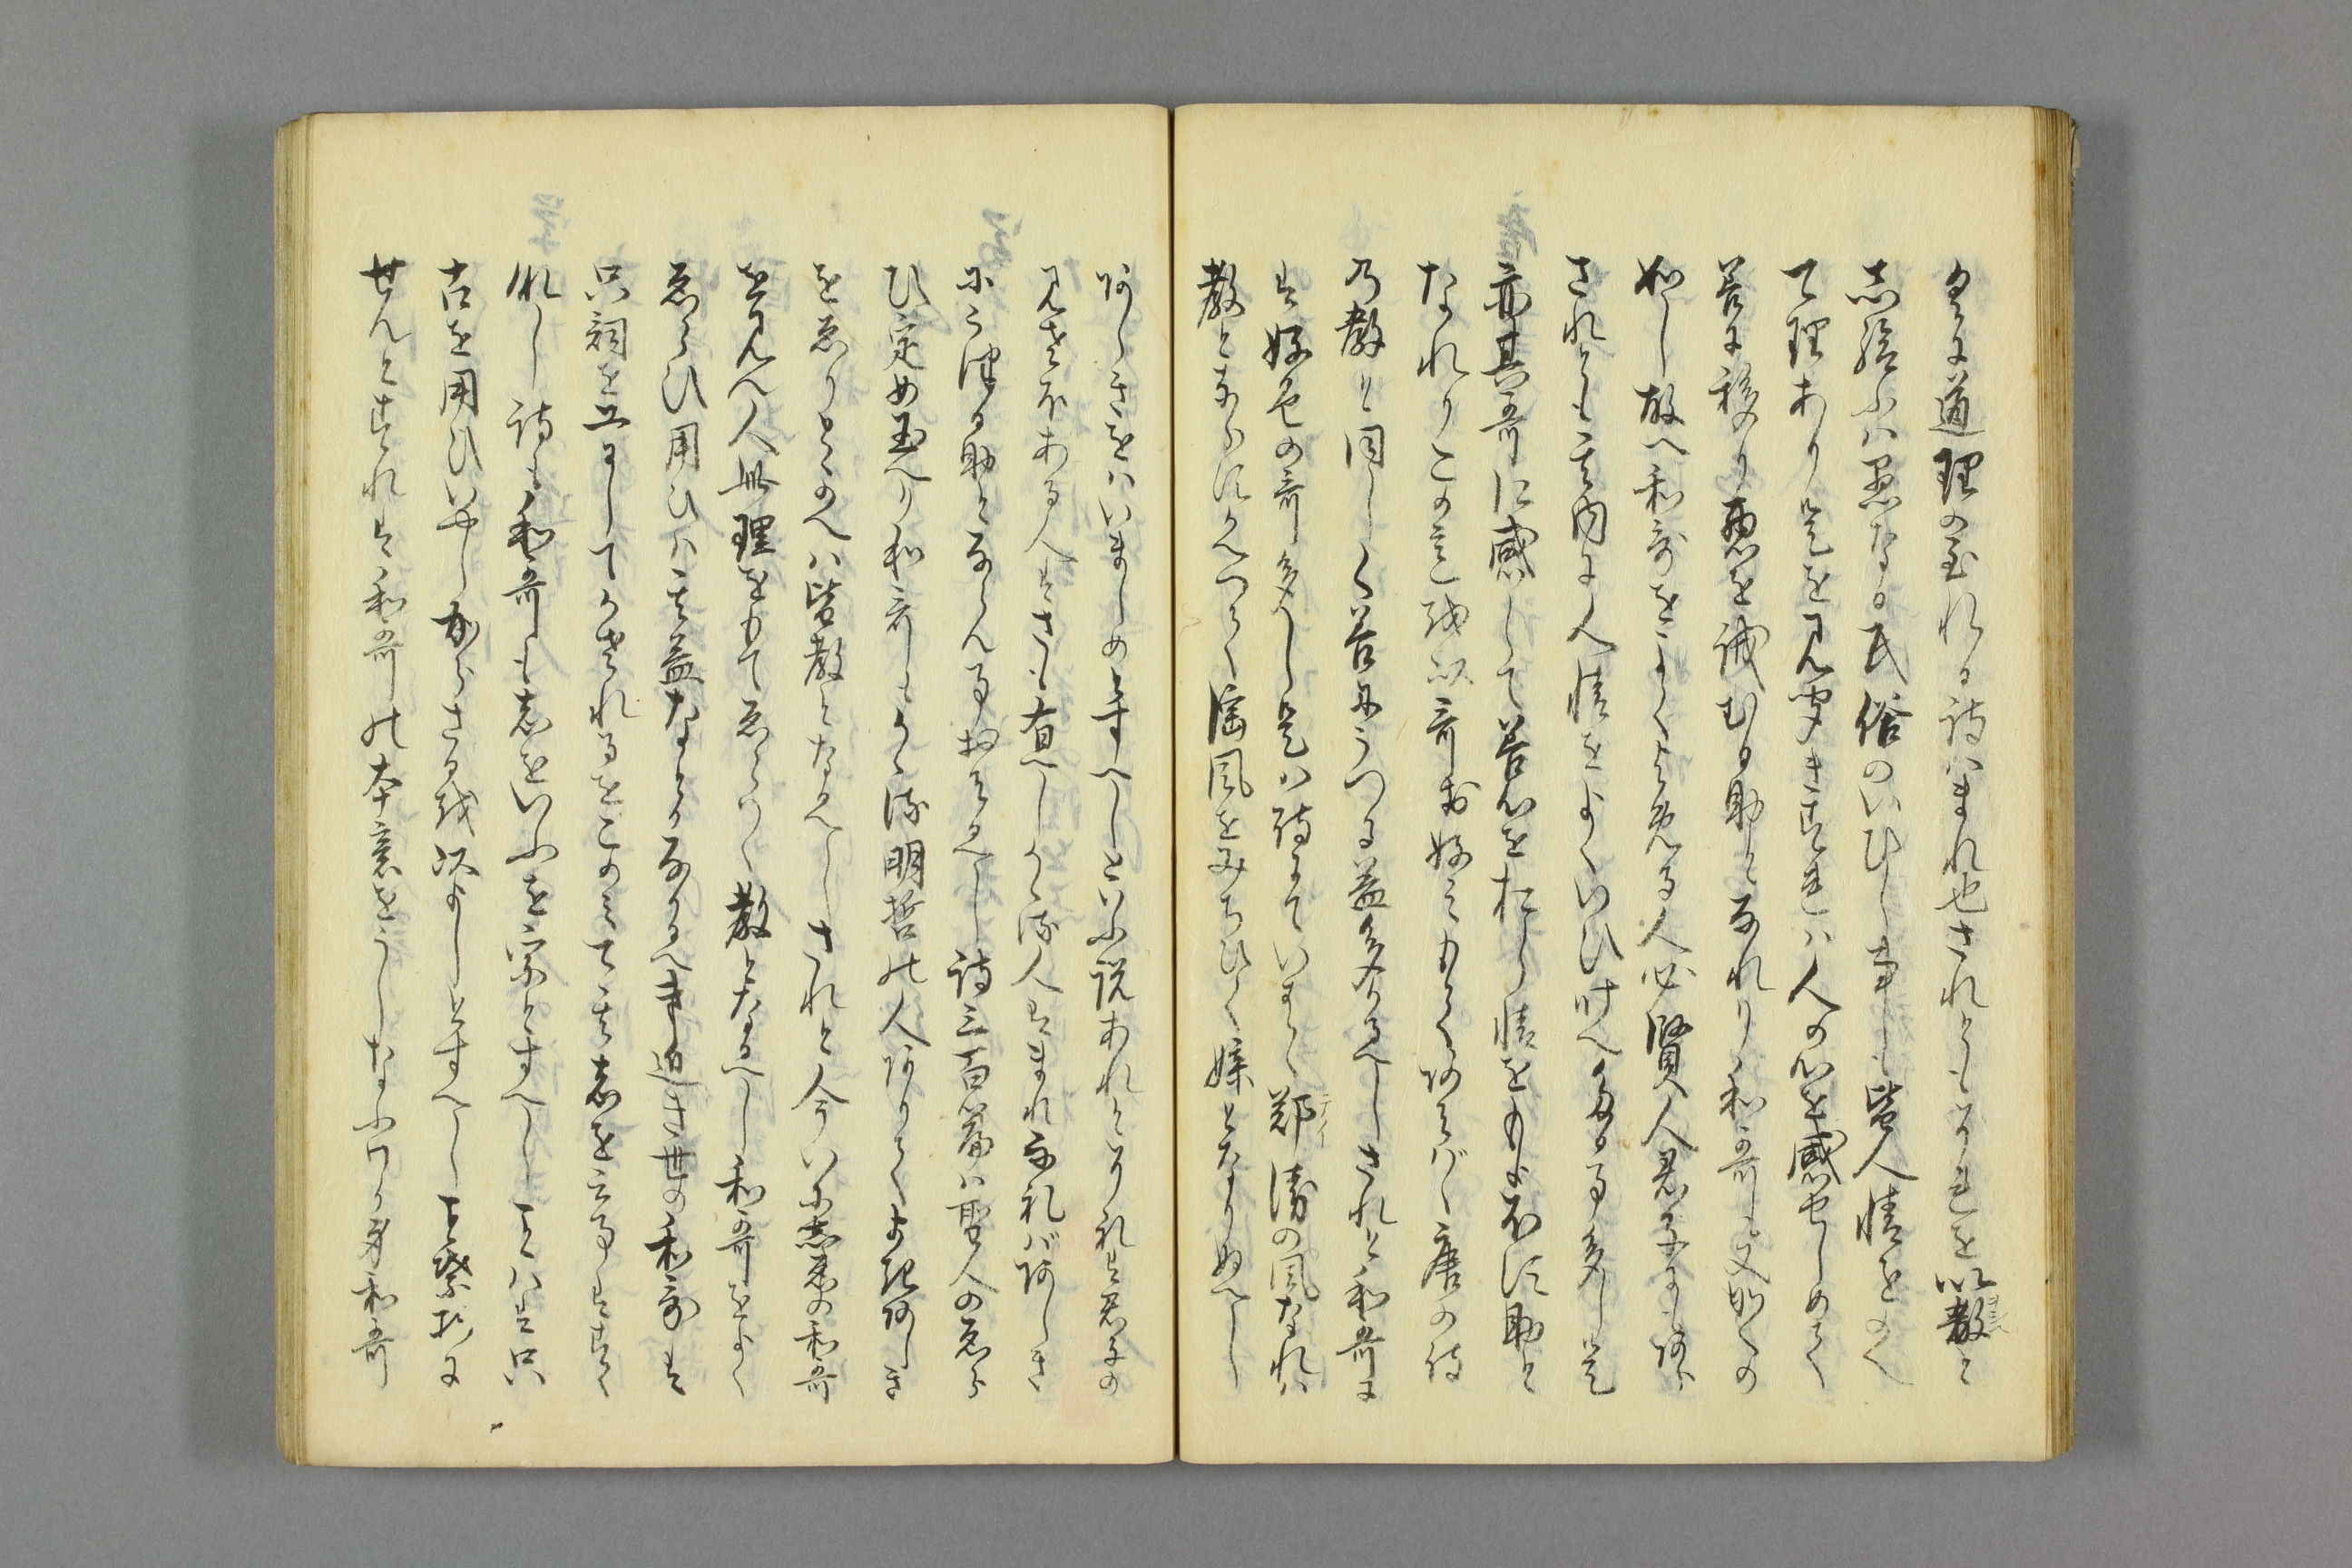 々に道理の至れる詩はまれ也されともこれを以教と
志給ふは愚なる民俗のいひし事も皆人情をのへ
て理あり是を見聞きすれは人の心を感せしめて
善に移り悪を誡むる助となれり和哥も又如くの
如し故へ和哥をよくよめる人必賢人君子にもあらす
されとも其内に人情をよくいひ叶へたる事多し是
亦其哥に感して善心をおこし情をもよほす助と
なれりこの意を以哥を好みもてあそばゝ唐の詩
乃教と同しく善にうつる益多かるへしされと和哥に
は好色の哥多くし是は詩にていはゝ鄭衛の風なれは
教とならすかへつて淫風をみちひく媒となりぬへし
あしきをはいましめとすへしといふ説あれとそれは君子の
見さほある人はさも有へしかゝる人はまれなればあしき
にうつる助とならん事おそるへし詩三百篇は聖人のゑら
ひ定め玉へり和哥もかゝる明哲の人ありてよきあしき
をゑりとゝのへは皆教となるへしされと今いにしゑの和哥
を見ん人無理をもてゑらひて教となるへし和哥をよく
ゑらひ用ひは其益なとかなかるへき近き世の和哥は
只詞を工にしてかされるをこのみて其志を言事はすく
なし詩も和哥も志をいふを宗とすへしことは只
古を用ひいやしからさるを以よしとすへしこと葉おゝに
せんとすれは和哥の本意をうしなふけり夛和哥